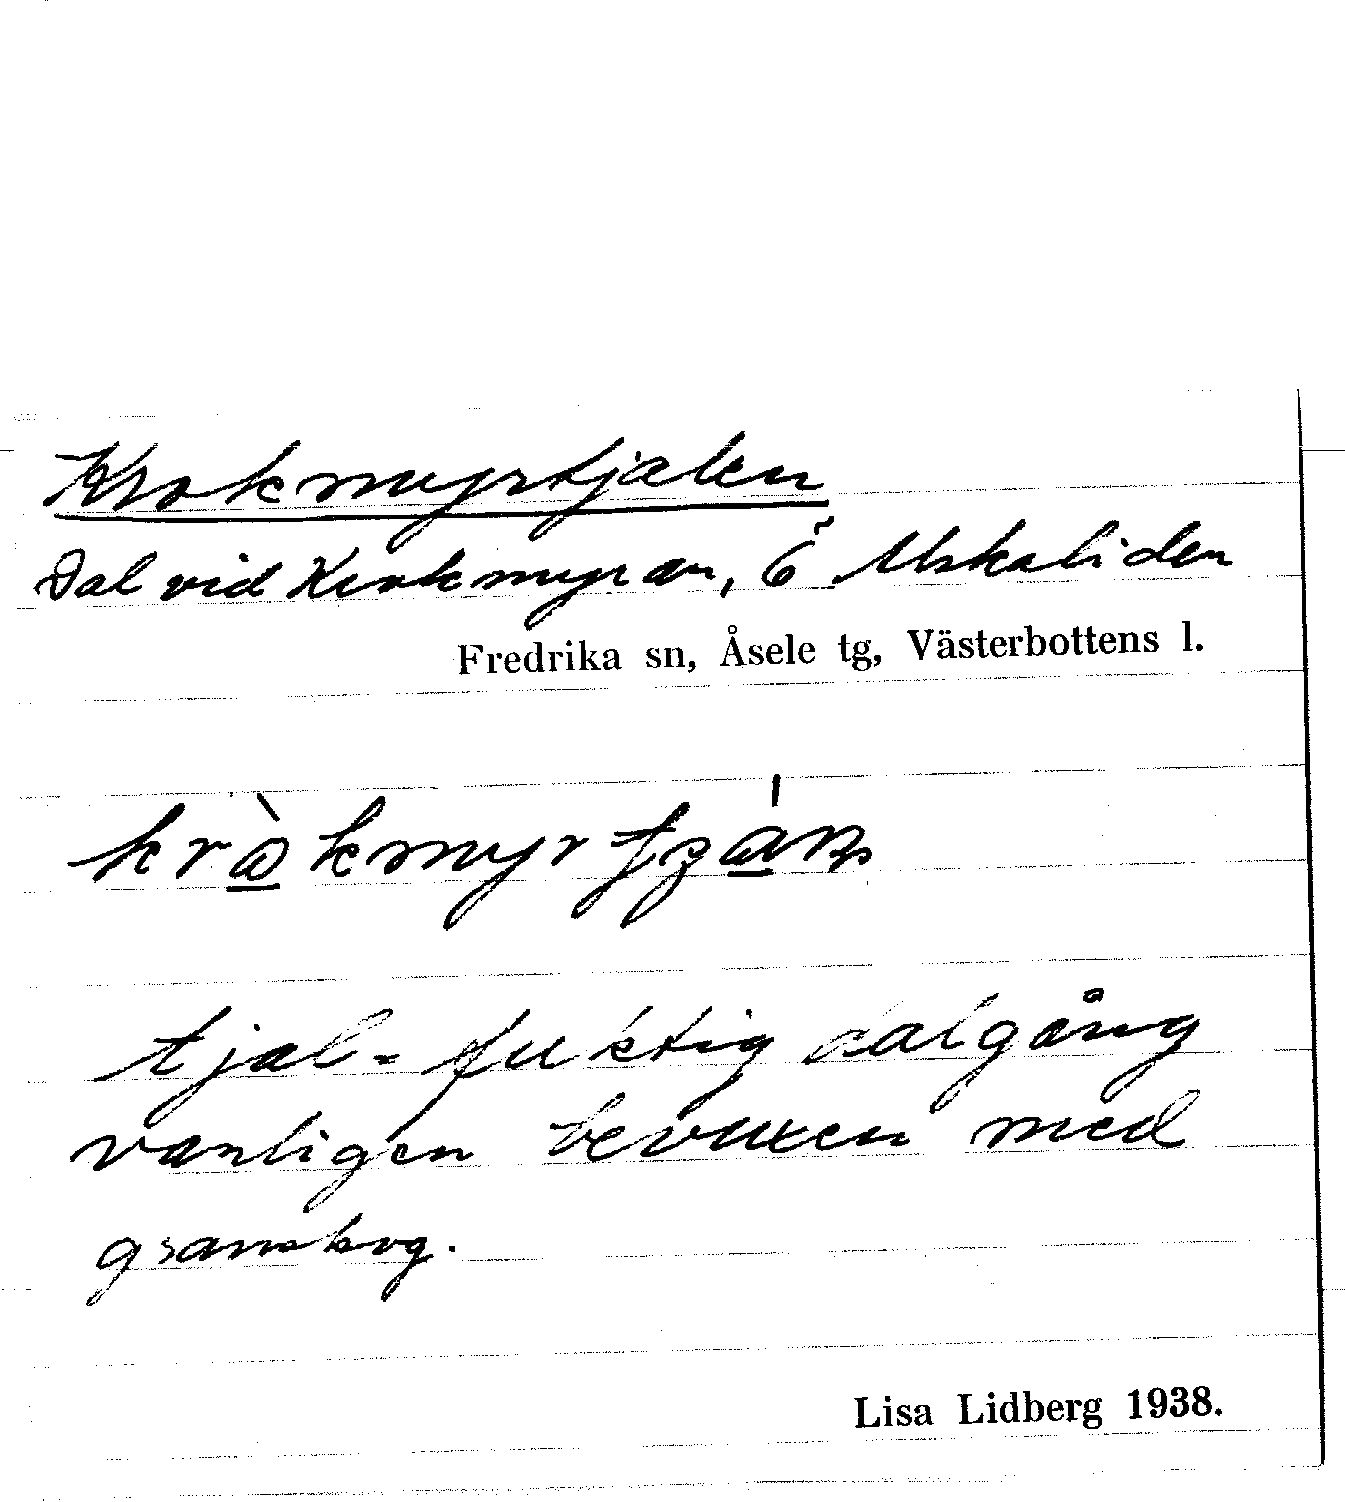 Krokmyrtjalen
Dal vid Krokmyran, Ö Alskaliden
Fredrika sn, Åsele tg, Västerbottens l.
tjal = fuktig dalgång
vanligen bevuxen med
granskog.
Lisa Lidberg 1938.